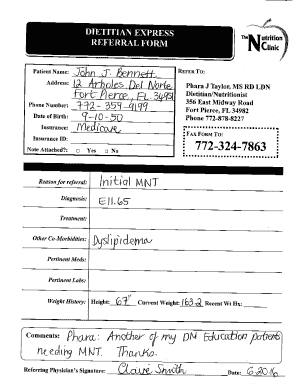 DIETITIAN EXPRESS
REFERRAL FORM
The Nutrition
Clinic
Patient Name: John J. Bennett
Address: 12 Arboles Del Norte
Fort Pierce, FL 34951
Phone Number: 772-359-9199
Date of Birth: 9-10-50
Insurance: Medicare
Insurance ID:
Note Attached?: Yes No
REFER TO:
Phara J Taylor, MS RD LDN
Dietitian/Nutritionist
356 East Midway Road
Fort Pierce, FL 34982
Phone 772-878-8227
FAX FORM TO:
772-324-7863
Reason for referral: Initial MNT
Diagnosis: E11.65
Treatment:
Other Co-Morbidities: Dyslipidema
Pertinent Meds:
Pertinent Labs:
Weight History: Height: 67" Current Weight: 163.2 Recent Wt Hx:
Comments: Phara: Another of my DM Education patients
needing MNT. Thanks.
Referring Physician's Signature: Smith Date: 6-20-16